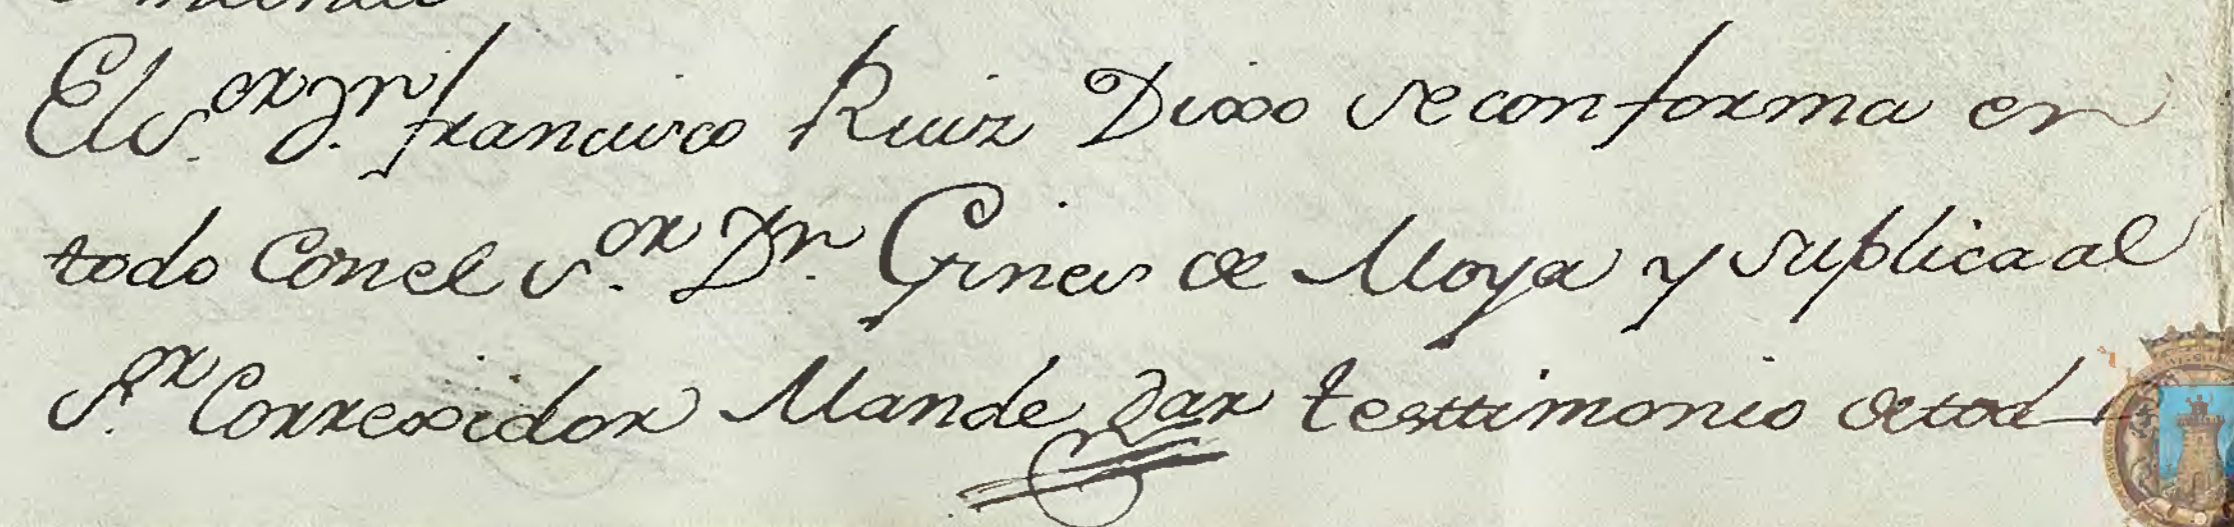 El S.or Dn. francisco Ruiz Dixo se conforma en
todo Con el S.or Dn. Gines de Moya y suplica al
S.or Correxidor Mande dar testtimonio de tod